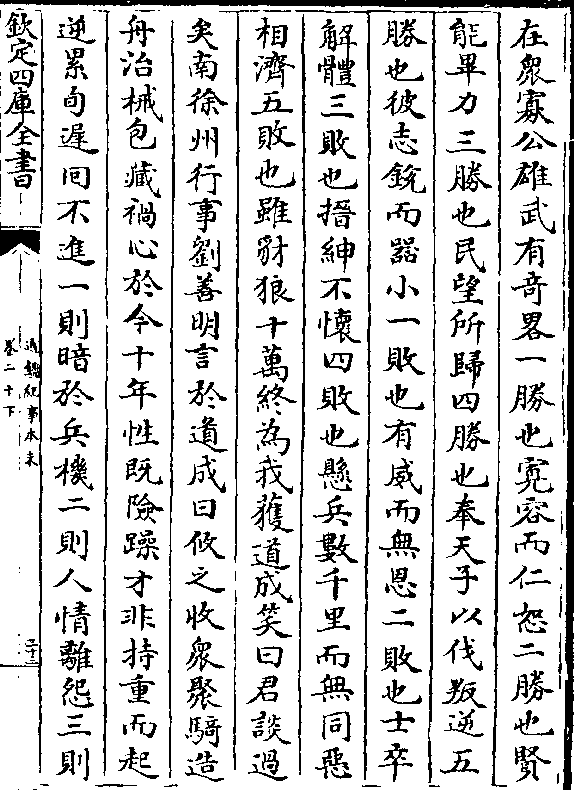 在衆寡公雄武有奇畧一勝也寛容而仁恕二勝也賢
能畢力三勝也民望所歸四勝也奉天子以伐叛逆五
勝也彼志鋭而器小一敗也有威而無恩二敗也士卒
解體三敗也搢紳不懐四敗也懸兵數千里而無同惡
相濟五敗也雖豺狼十萬終為我獲道成笑曰君談過
矣南徐州行事劉善明言於道成曰攸之收衆聚騎造
舟治械包藏禍心於今十年性既險躁才非持重而起
逆累旬遲囘不進一則暗於兵機二則人情離怨三則
欽定四庫全書
通鑑紀事本末
卷二十下
三十三